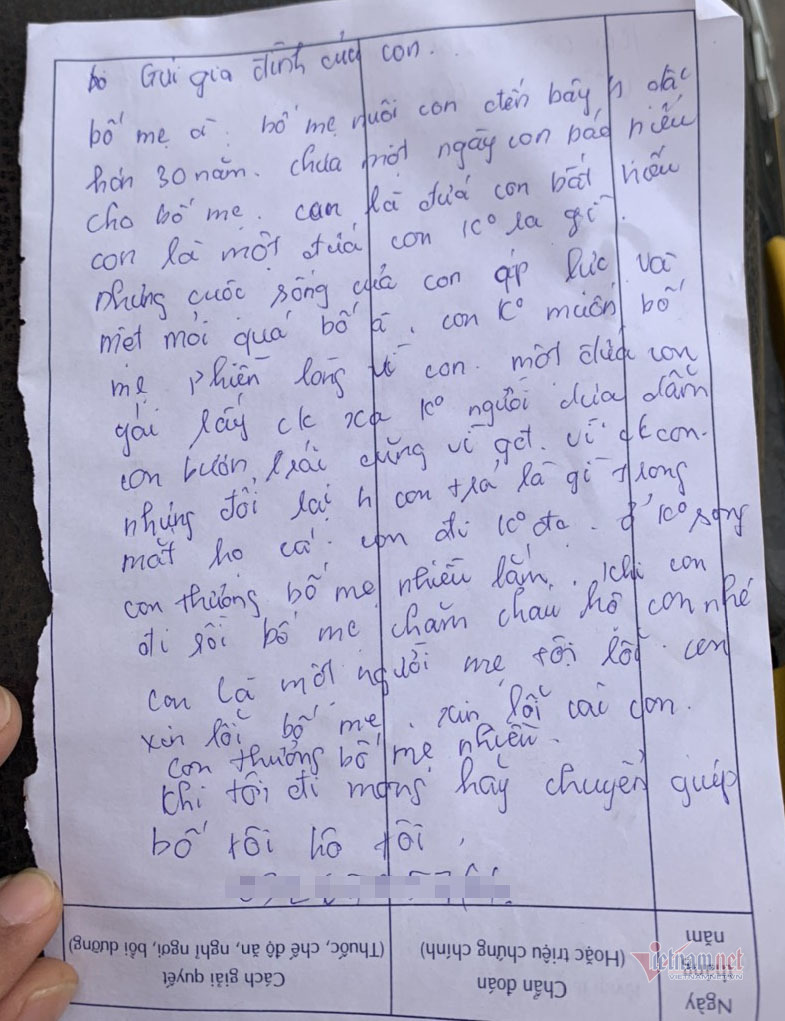 Gửi gia đình của con.
bố mẹ à. bố mẹ nuôi con đến bây h đc
hơn 30 năm. chưa một ngày con báo hiếu
cho bố mẹ. con là đứa con bất hiếu
con là một đứa con ko ra gì.
nhưng cuộc sống của con áp lực và
mệt mỏi quá bố à. con ko muốn bố
mẹ phiền lòng vì con. một đứa con
gái lấy ck xa ko người đưa đón
con buôn trái cũng vì gđ. vì ck con.
nhưng đổi lại h con trả là gì trong
mắt họ cả. con đi ko đc. ở ko song
con thương bố mẹ nhiều lắm. khi con
đi rồi bố mẹ chăm cháu hộ con nhé
con là một người mẹ tội lỗi. con
xin lỗi bố mẹ. xin lỗi các con.
con thương bố mẹ nhiều.
khi tôi đi mong hãy chuyển guiép
bố tôi hộ tôi.
Ngày
năm
Chẩn đoán
(Hoặc triệu chứng chính)
Cách giải quyết
(Thuốc, chế độ ăn, nghỉ ngơi, bồi dưỡng)
vietnamnet